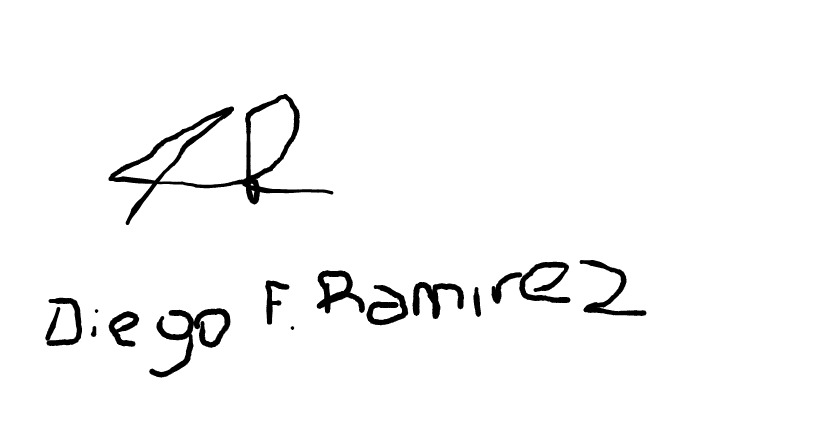 Diego F. Ramirez